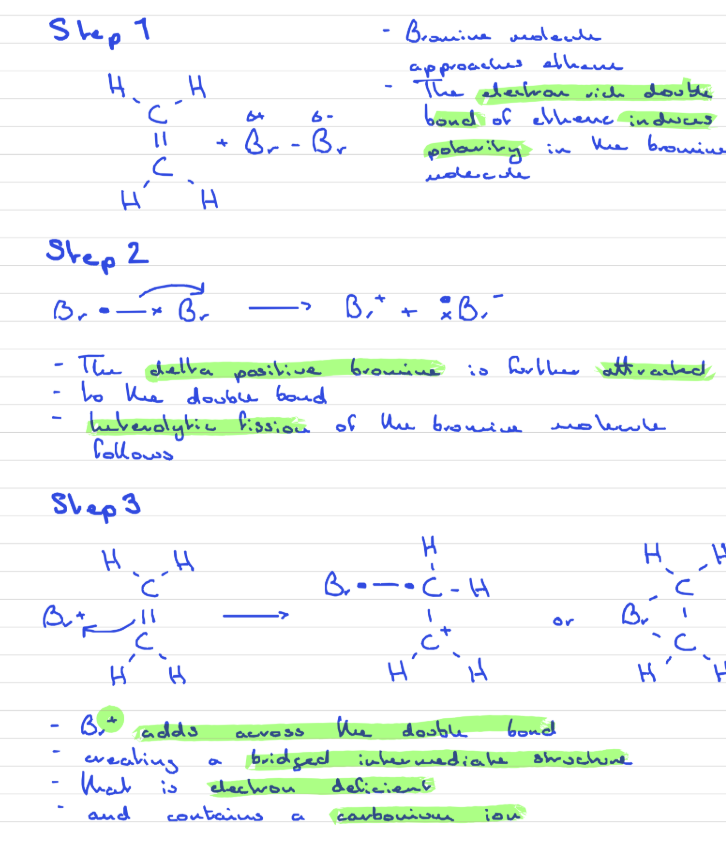 Step 1
- Bromine molecule
approaches ethene
- The electron rich double
bond of ethene induces
polarity in the bromine
molecule
H H
C
||
C
H H
+
δ+ δ-
Br - Br
Step 2
Br •—× Br → Br+ + •×Br-
- The delta positive bromine is further attracted
- to the double bond
- heterolytic fission of the bromine molecule
follows
Step 3
H H
C
Br+ ||
C
H H
→
H
Br •—• C - H
|
C+
H H
or
H H
C
Br |
C
H H
- Br+ adds across the double bond
- creating a bridged intermediate structure
- that is electron deficient
- and contains a carbonium ion